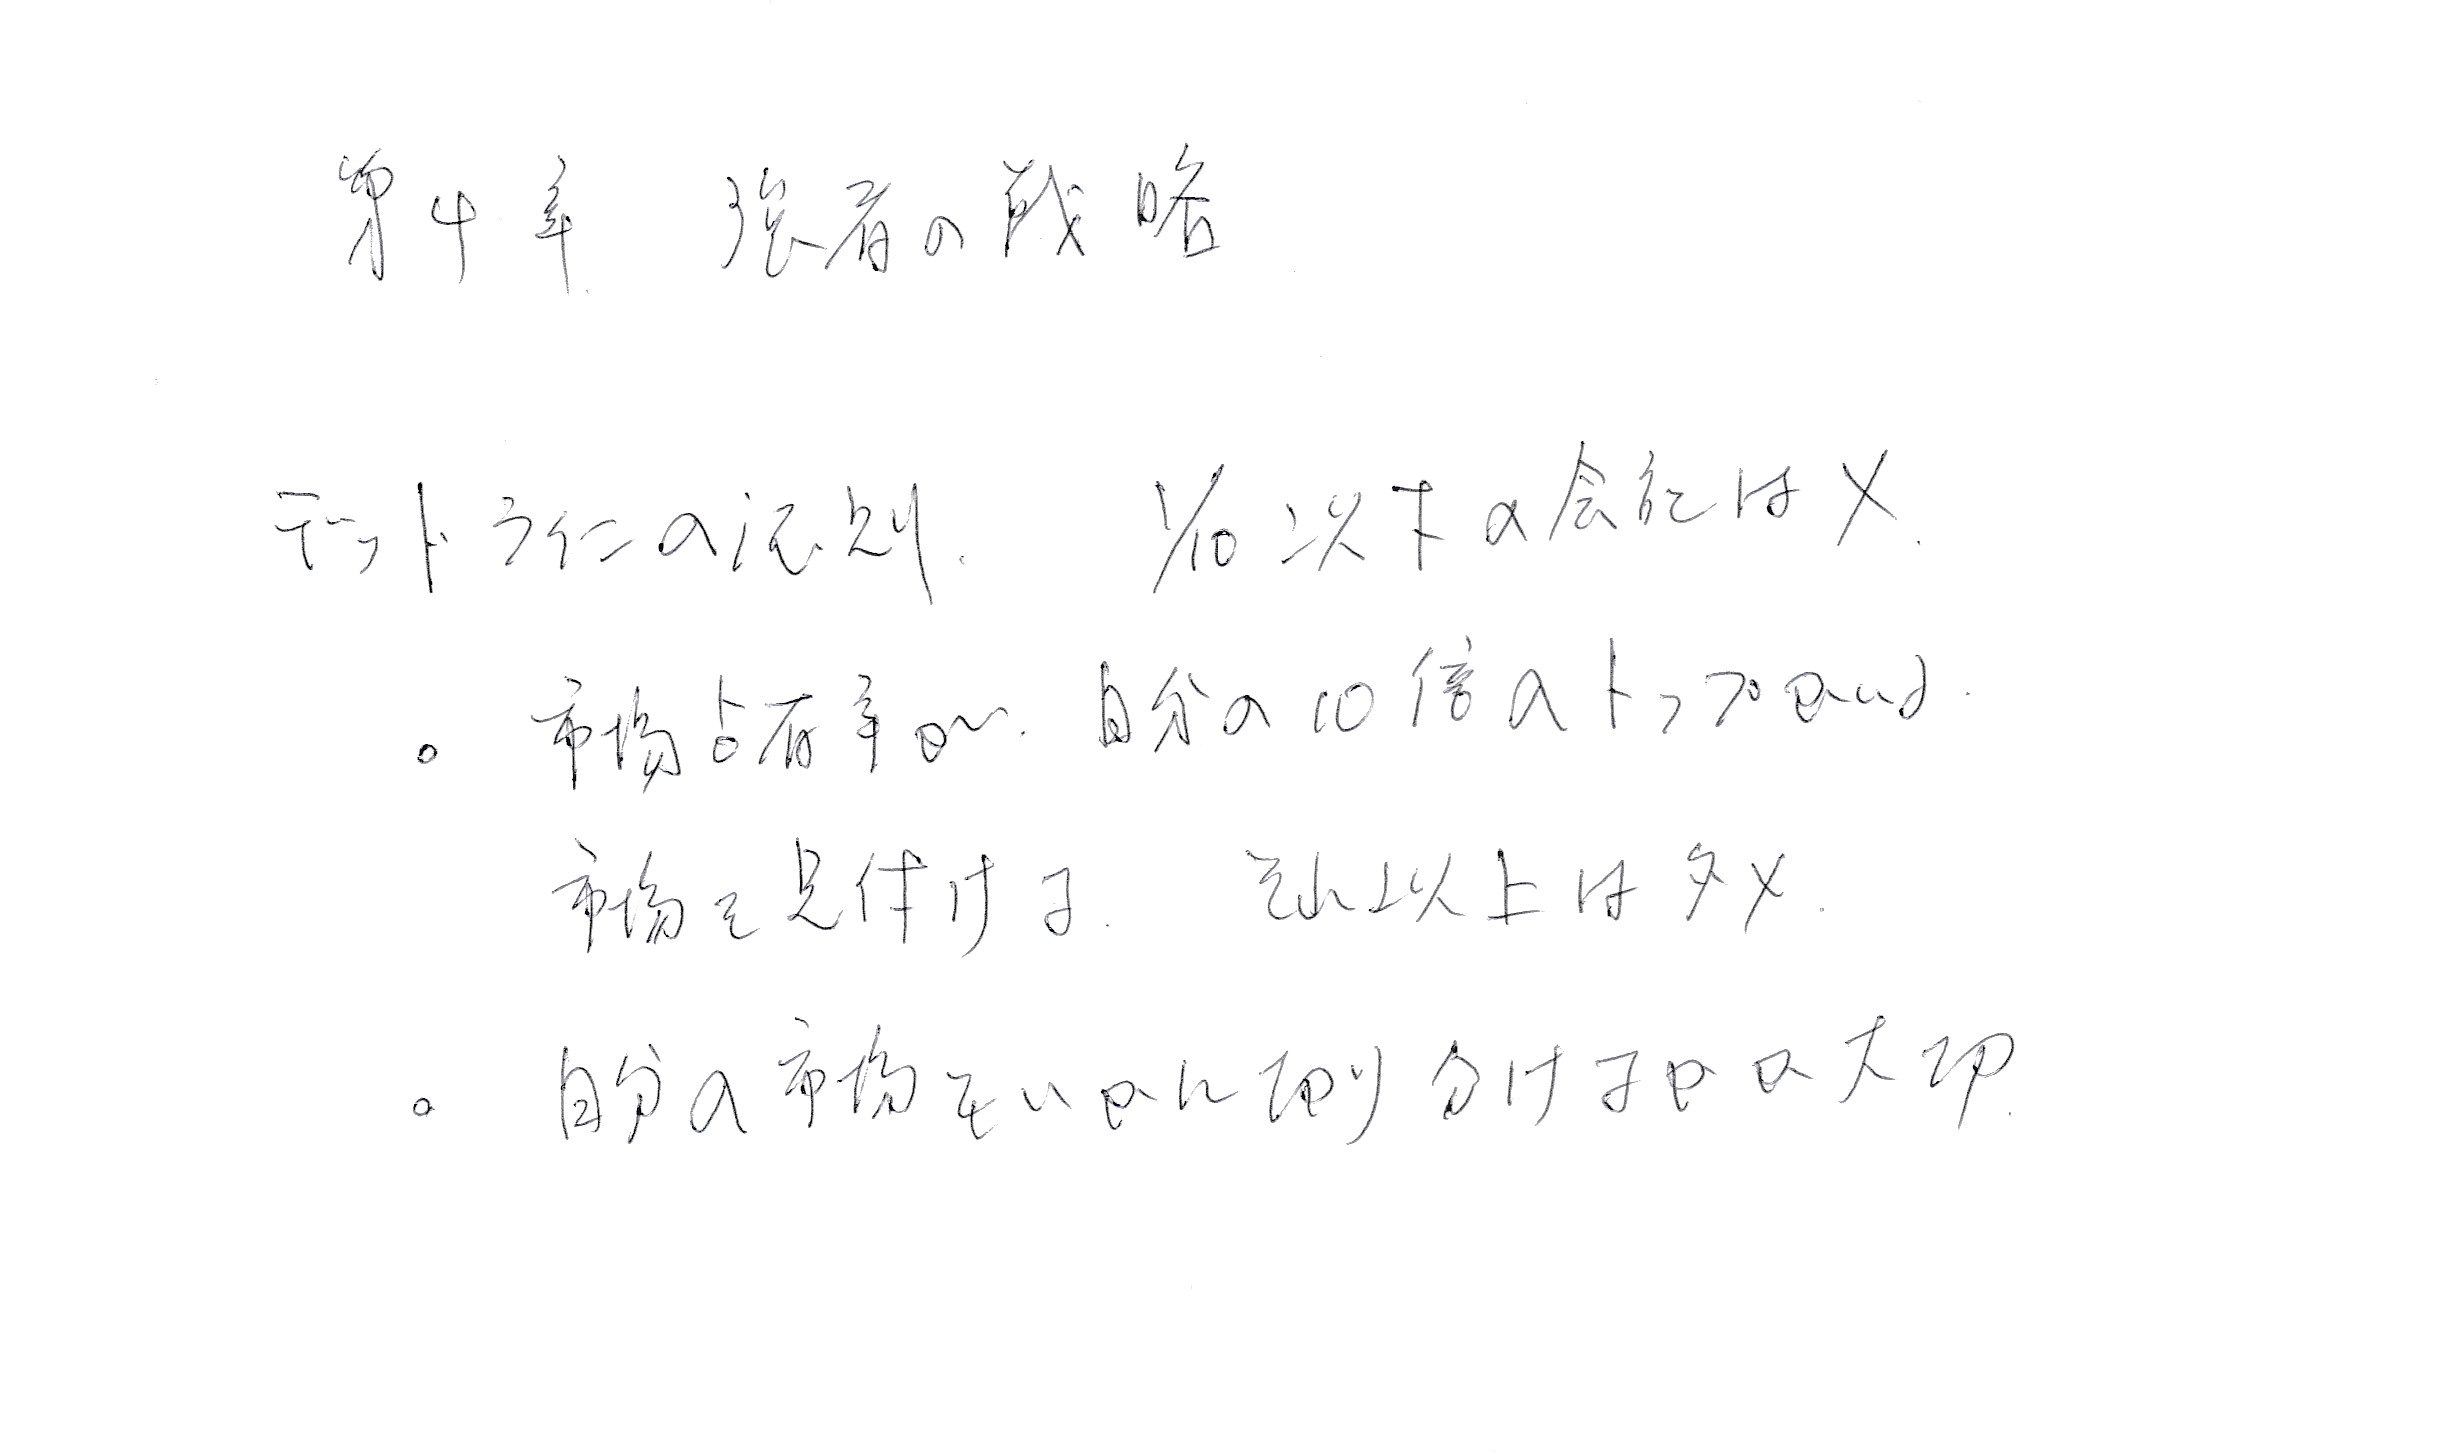 第4章 強者の戦略
デットラインの法則. 1/10以下の会社は×.
。市場占有率が. 自分の10倍のトップがいる.
市場を見付ける. それ以上はダメ.
。自分の市場をいかに切り分けるかが大切.